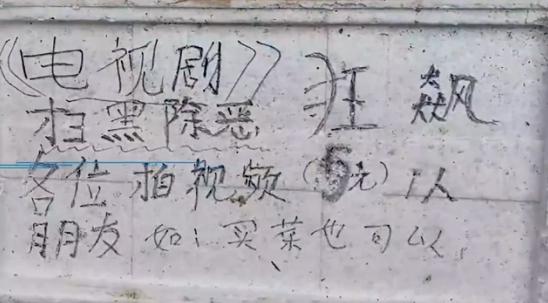 《电视剧》 狂飙
扫黑除恶
各位拍视频（5元）1人
朋友如：买菜也可以